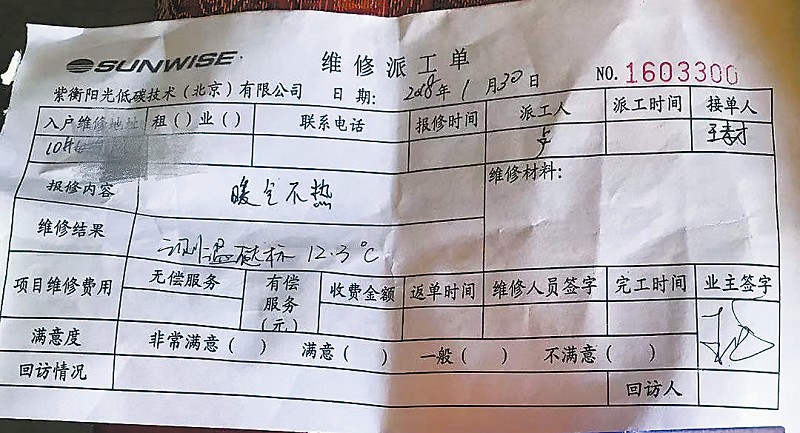 SUNWISE 维修派工单 NO. 1603300
紫衡阳光低碳技术（北京）有限公司 日期: 2018年1月30日
入户维修地址 租（）业（） 联系电话 报修时间 派工人 派工时间 接单人
报修内容 暖气不热 维修材料:
维修结果 测温 12.3℃
项目维修费用 无偿服务 有偿服务（元） 收费金额 返单时间 维修人员签字 完工时间 业主签字
满意度 非常满意（ ） 满意（ ） 一般（ ） 不满意（ ）
回访情况 回访人